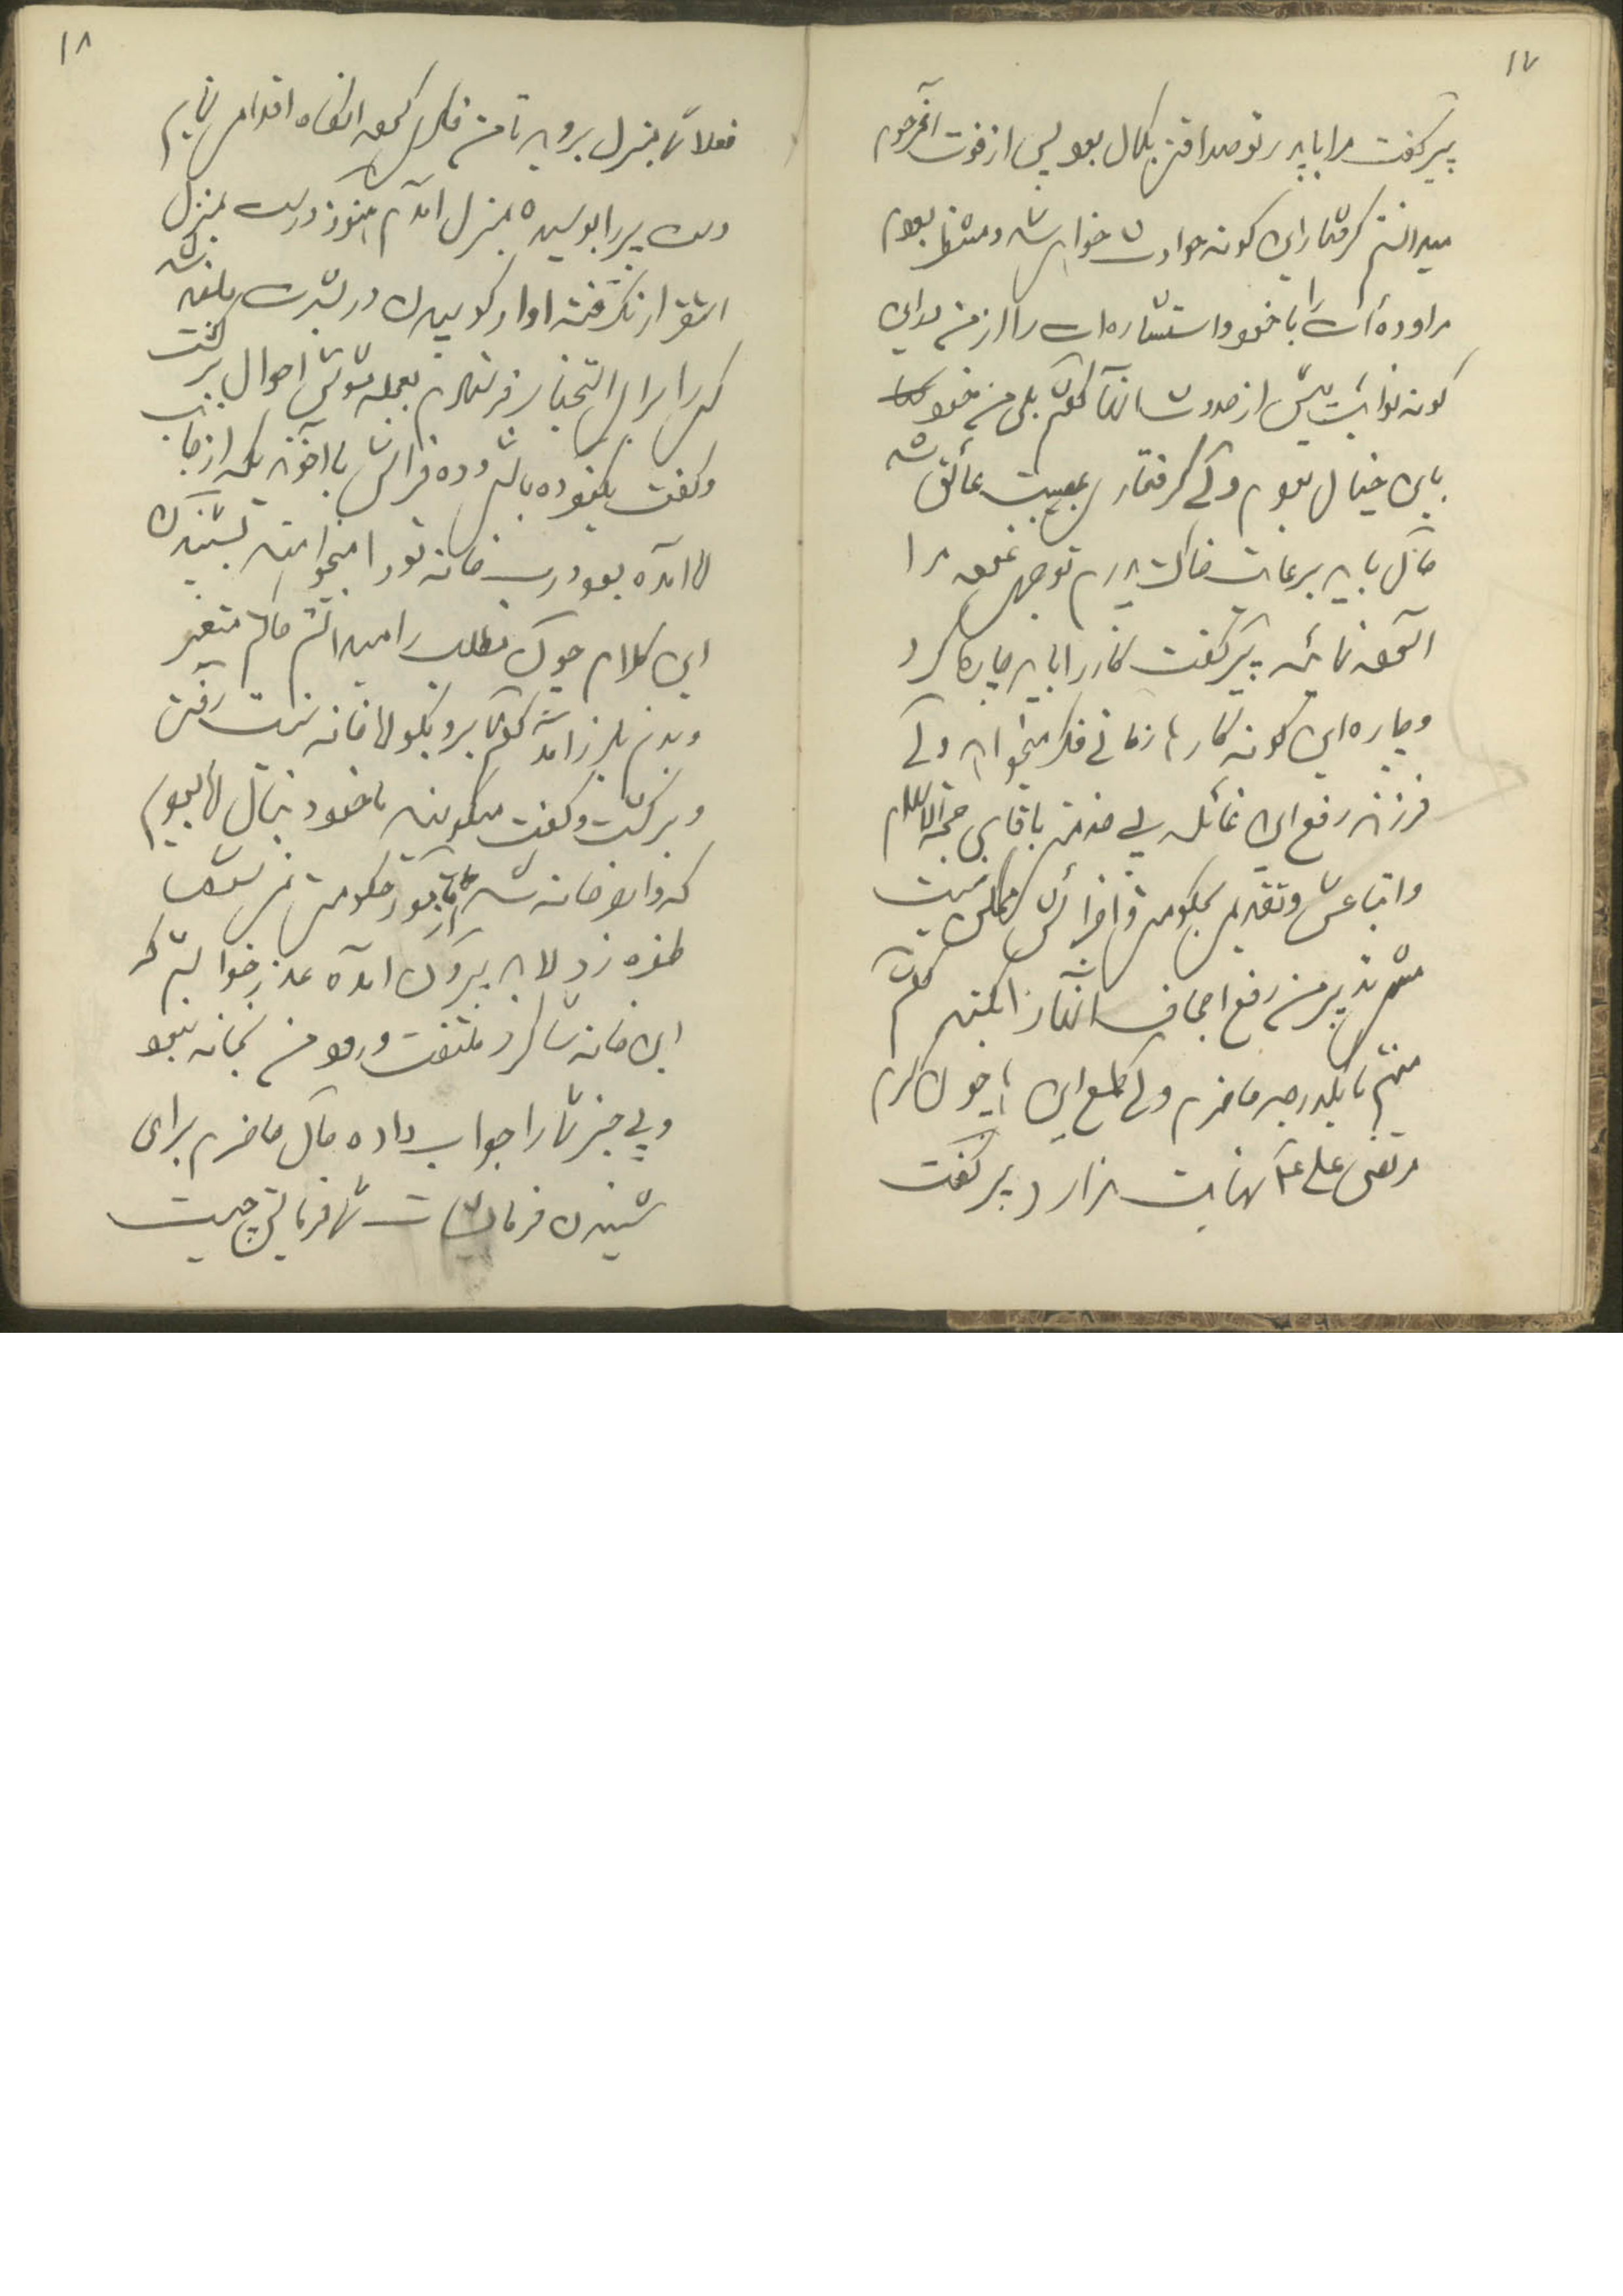 ۱۷
پیر گفت مرا با پدر تو صداقتی بکمال بود پس از فوت آنمرحوم
میدانستم گرفتار این گونه حوادث خواهی شد و منتظر بودم
مراوده‌ات را با خود و استشاره‌ات را از من برای این
گونه نوائب پیش از حدوث آنها گفتم بلی من خود
باین خیال بودم ولی گرفتاری عجیب عائق شد
حال باید برعایت خاک پدرم توجهی نموده مرا
آسوده نمائید پیر گفت کار را باید چاره کرد
و چاره این گونه کارها زمانی فکر میخواهد ولی
فرزند رفع این غائله بی خدمتی باقای حجةالاسلام
و اتباعش و تقدیمی بحکومت و اجزائش ممکن نیست
من رفع اجحاف آنها را گفتم
منهم تا یکدرجه حاضرم ولی طمع این چون کرم
مرتضی علی نهایت ندارد پیر گفت
۱۸
فعلاً شما بمنزل بروید تا من فکری کرده آنگاه اقدامی نمایم
دست پیر را بوسیده بمنزل آمدم هنوز درست بمنزل
استقرار نگرفته آواز کوبیدن در بشدت بلند شد
کسی را برای استخبار فرستادم بعجله مشوش احوال برگشت
و گفت یکنفر ده باشی و ده فراش با آخوند یکه از جانب
آقا آمده بود درب خانه تو را میخواهند بشنیدن
این کلام چون مطلب را میدانستم حالم متغیر
و بدنم بلرز آمد گفتم برو بگو آقا خانه نیست رفت
و برگشت و گفت میگویند ما خود دنبال آقا بودیم
که وارد خانه شد از حکومت نمی‌شود
طفره زد لابد بیرون آمده عذر خواستم که
این خانه شاگرد ملتفت ورود من بخانه نبود
و بی خبر شما را جواب داده حال حاضرم برای
شنیدن فرمایشات شما فرمایش چیست